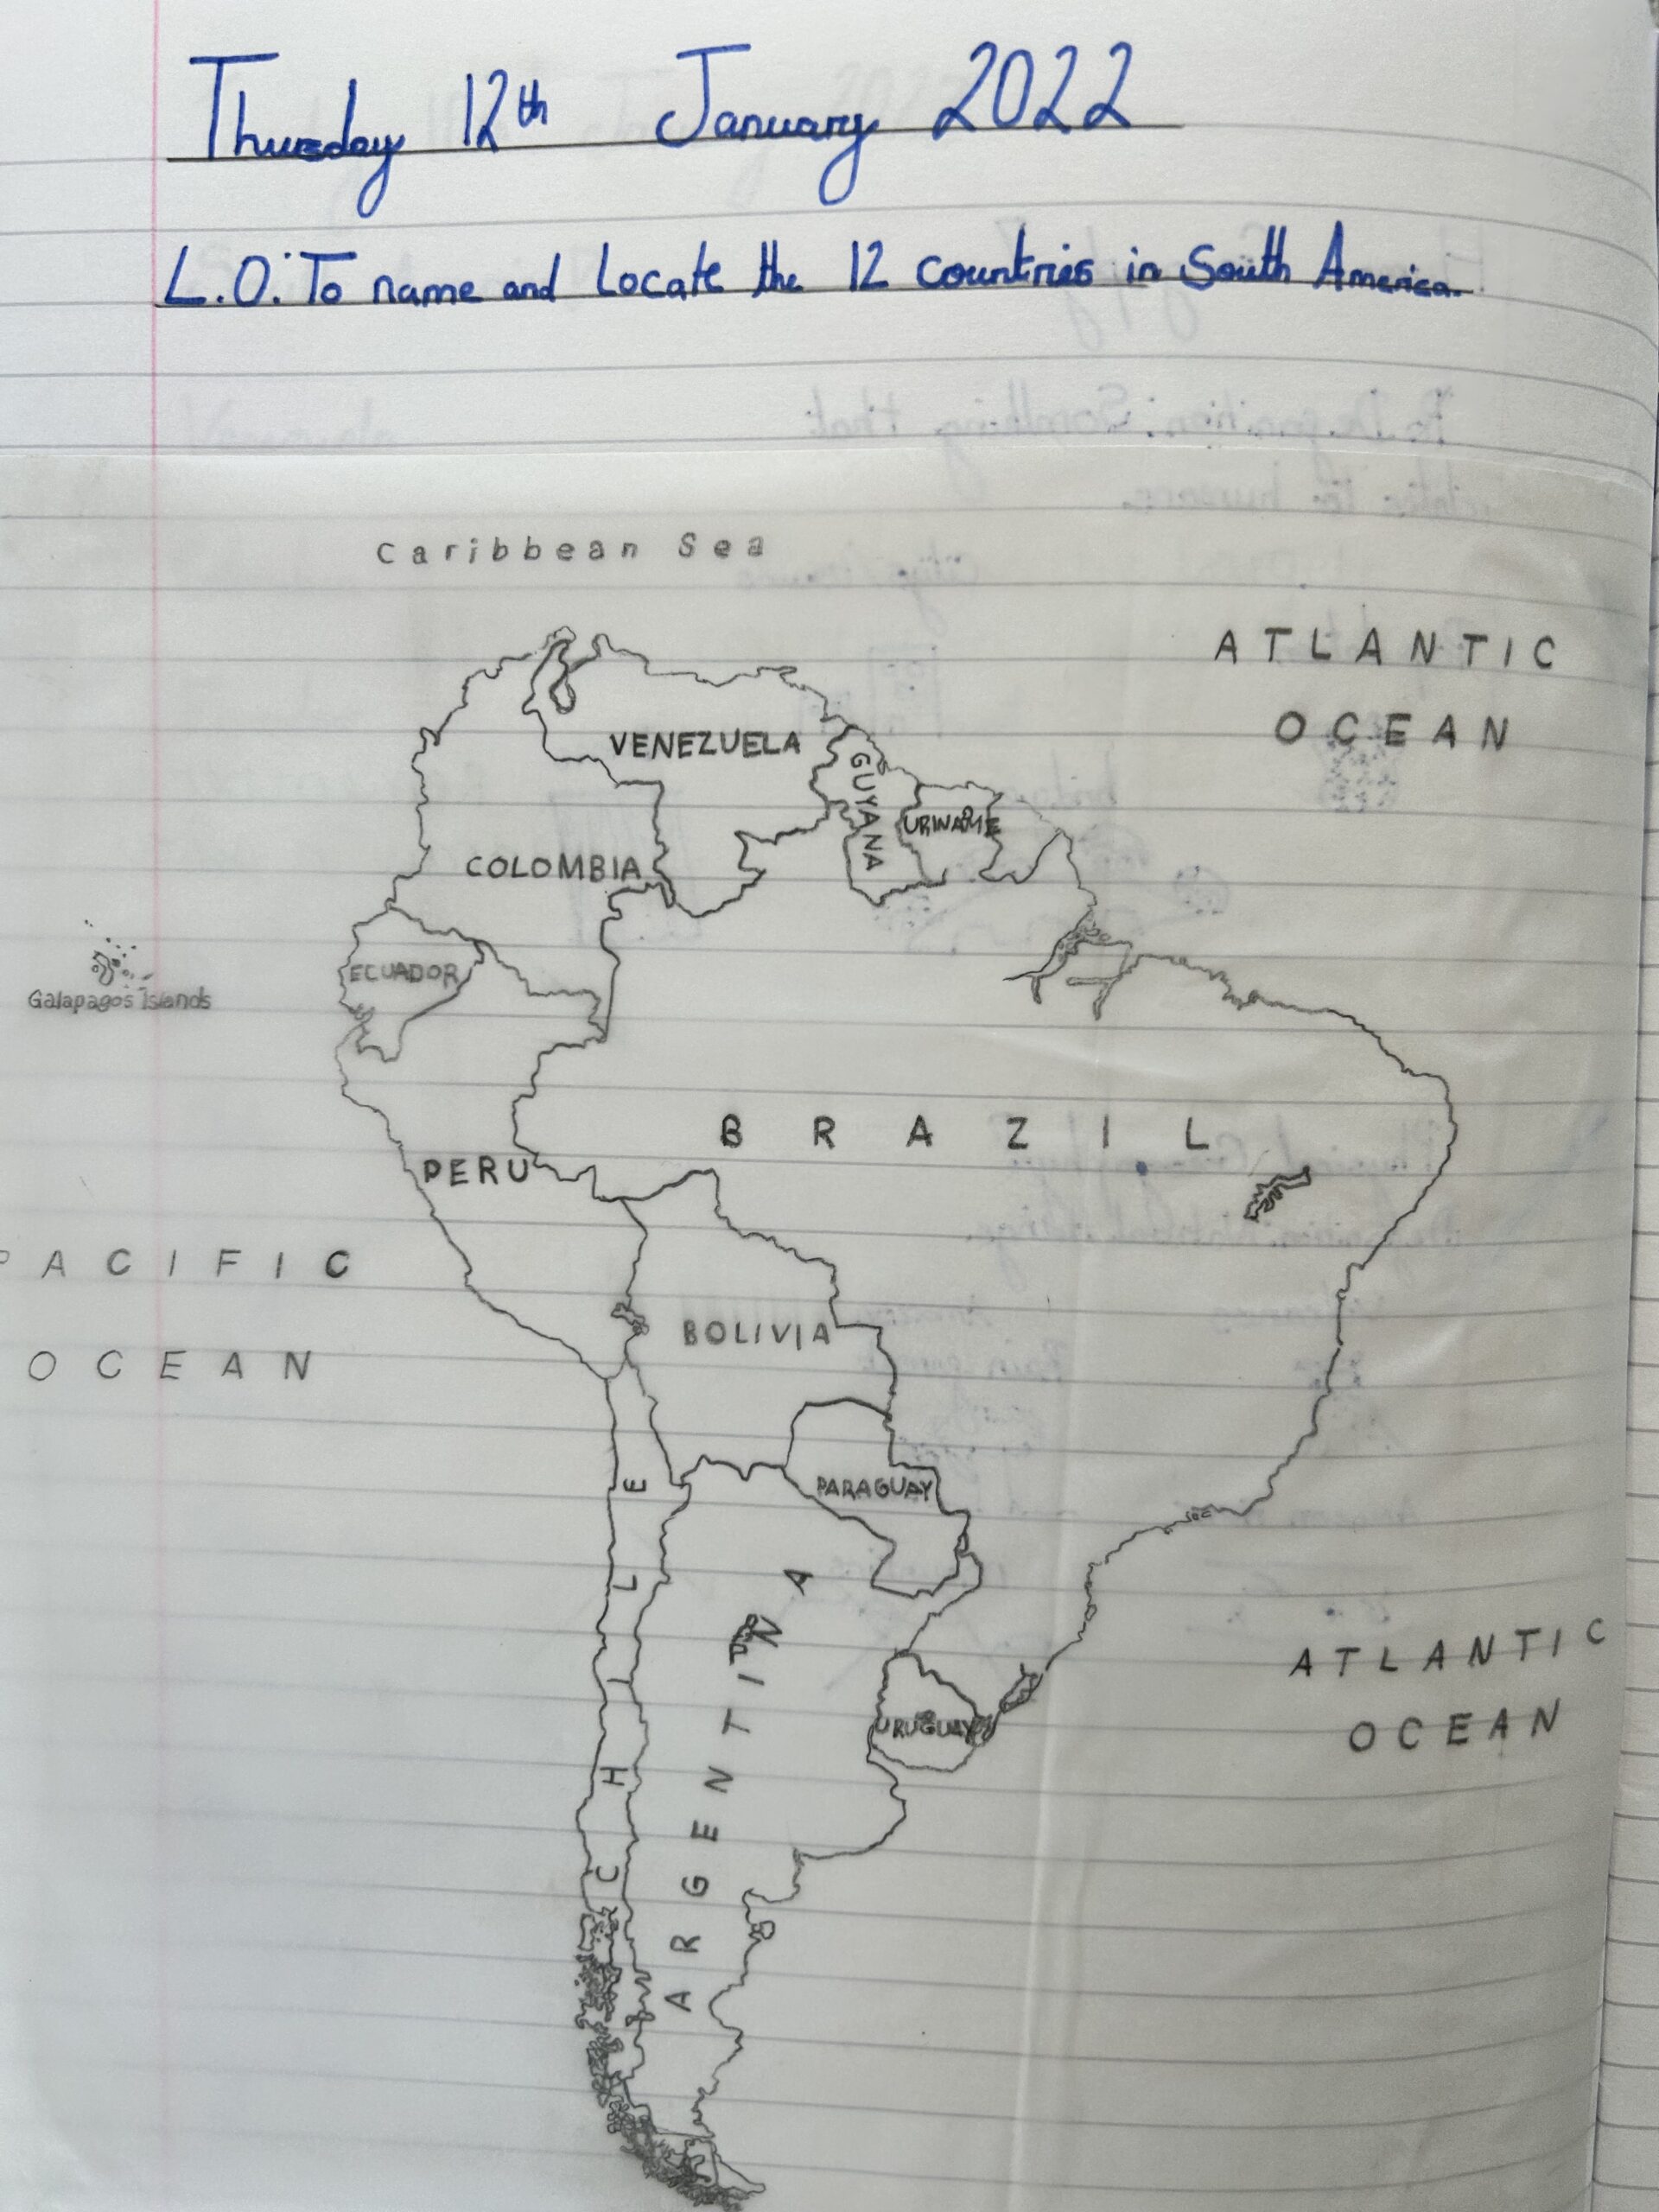 Thursday 12th January 2022
L.O: To name and Locate the 12 countries in South America.
Caribbean Sea
ATLANTIC
OCEAN
VENEZUELA
GUYANA
URINAME
COLOMBIA
ECUADOR
Galapagos Islands
BRAZIL
PERU
PACIFIC
OCEAN
BOLIVIA
PARAGUAY
CHILE
ARGENTINA
URUGUAY
ATLANTIC
OCEAN